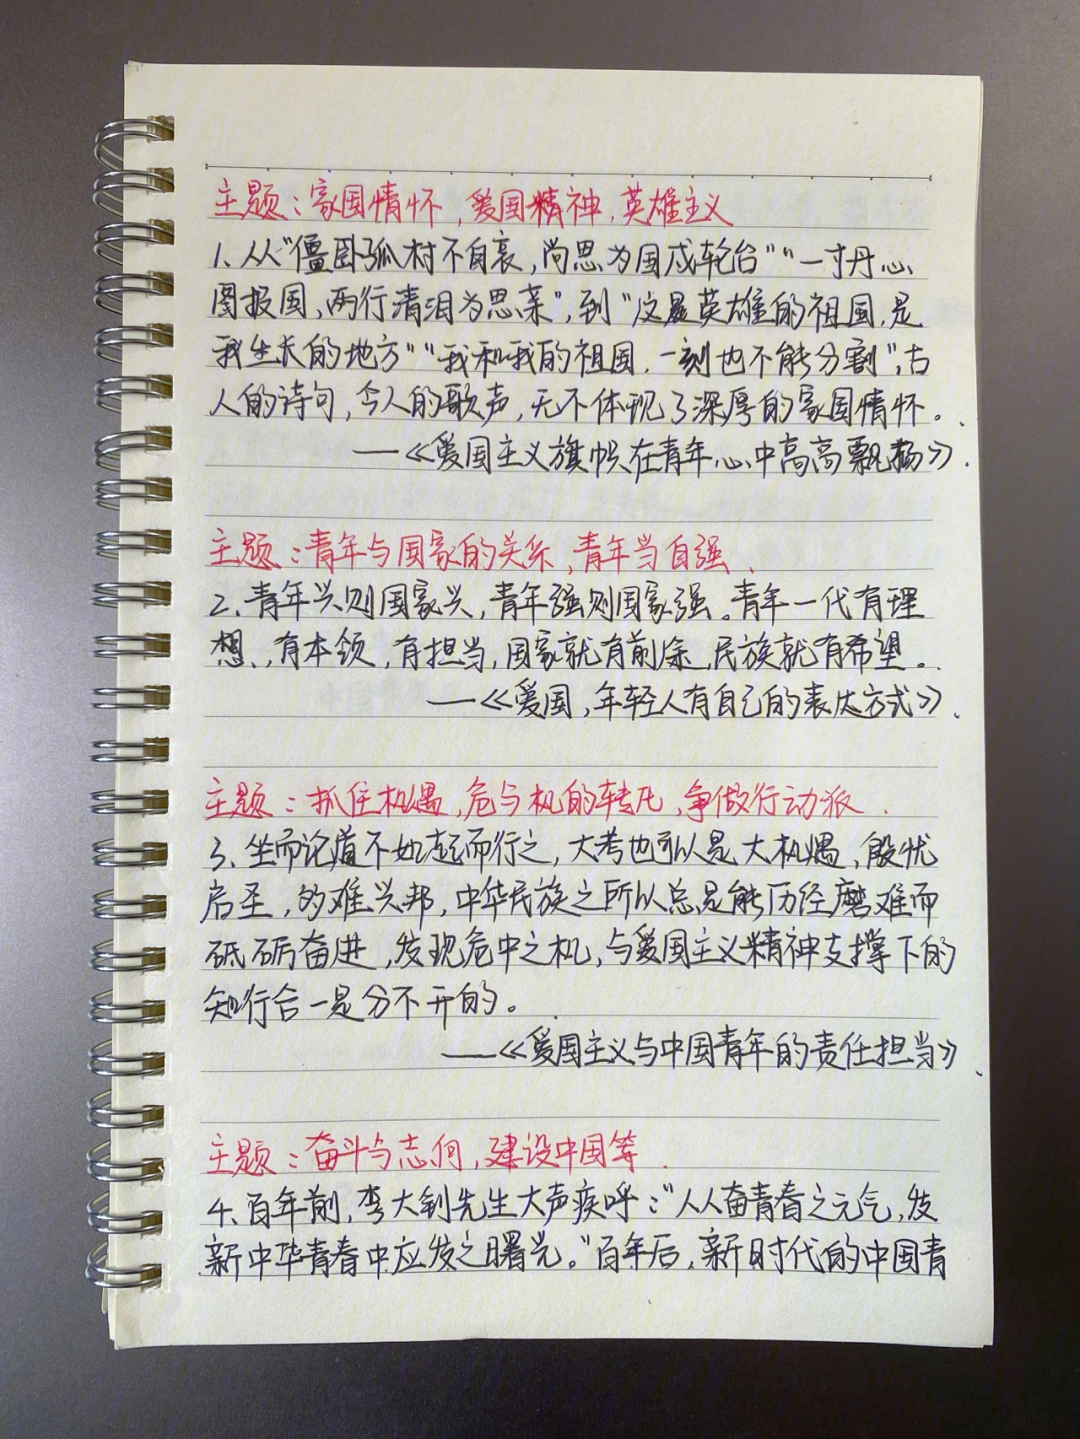 主题：家国情怀，爱国精神，英雄主义
1、从“僵卧孤村不自哀，尚思为国戍轮台”“一寸丹心
图报国，两行清泪为思亲”，到“这是英雄的祖国，是
我生长的地方”“我和我的祖国，一刻也不能分割”，古
人的诗句，今人的歌声，无不体现了深厚的家国情怀。
——《爱国主义旗帜在青年心中高高飘扬》
主题：青年与国家的关系，青年当自强
2、青年兴则国家兴，青年强则国家强。青年一代有理
想、有本领，有担当，国家就有前途，民族就有希望。
——《爱国，年轻人有自己的表达方式》
主题：抓住机遇，危与机的转化，争做行动派
3、坐而论道不如起而行之，大考也可以是大机遇，殷忧
启圣，多难兴邦，中华民族之所以总是能历经磨难而
砥砺奋进，发现危中之机，与爱国主义精神支撑下的
知行合一是分不开的。
——《爱国主义与中国青年的责任担当》
主题：奋斗与志向，建设中国等
4、百年前，李大钊先生大声疾呼：“人人奋青春之元气，发
新中华青春中应发之曙光。”百年后，新时代的中国青